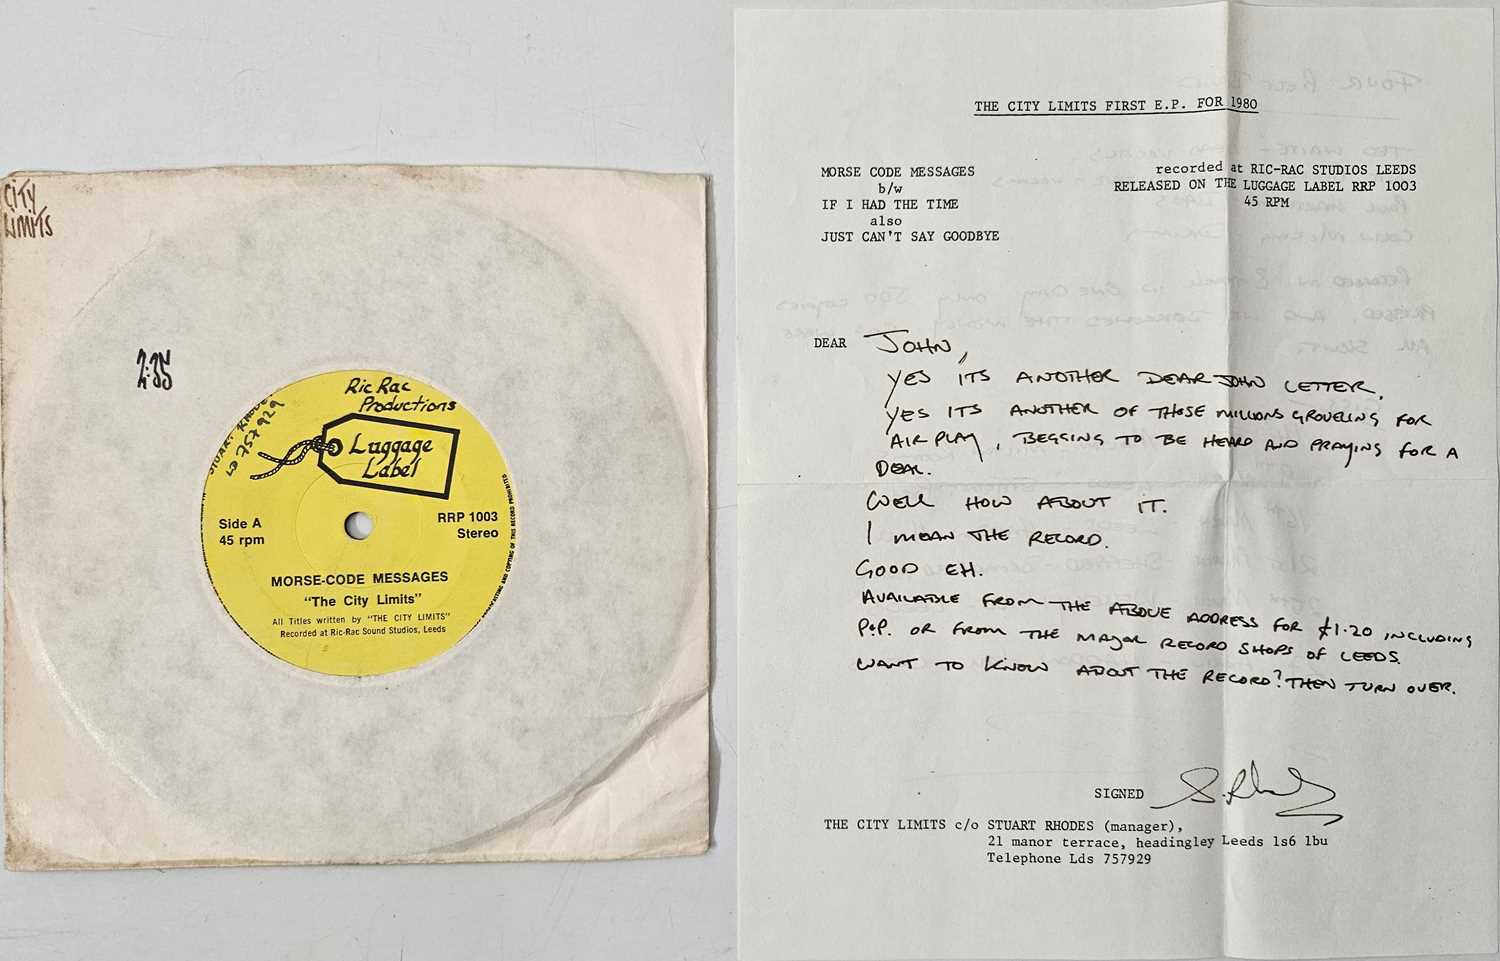 CITY
LIMITS
2:35
STUART RHODE
LD 757929
Ric Rac
Productions
Luggage
Label
Side A
45 rpm
RRP 1003
Stereo
MORSE-CODE MESSAGES
"The City Limits"
All Titles written by "THE CITY LIMITS"
Recorded at Ric-Rac Sound Studios, Leeds
COPYING OF THIS RECORD PROHIBITED
THE CITY LIMITS FIRST E.P. FOR 1980
MORSE CODE MESSAGES
b/w
IF I HAD THE TIME
also
JUST CAN'T SAY GOODBYE
recorded at RIC-RAC STUDIOS LEEDS
RELEASED ON THE LUGGAGE LABEL RRP 1003
45 RPM
DEAR JOHN,
YES ITS ANOTHER DEAR JOHN LETTER.
YES ITS ANOTHER OF THOSE MILLIONS GROVELING FOR
AIR PLAY, BEGGING TO BE HEARD AND PRAYING FOR A
DEAR.
WELL HOW ABOUT IT.
I MEAN THE RECORD.
GOOD EH.
AVAILABLE FROM THE ABOVE ADDRESS FOR £1.20 INCLUDING
P.P. OR FROM THE MAJOR RECORD SHOPS OF LEEDS.
WANT TO KNOW ABOUT THE RECORD? THEN TURN OVER.
SIGNED S. Rhodes
THE CITY LIMITS c/o STUART RHODES (manager),
21 manor terrace, headingley Leeds ls6 1bu
Telephone Lds 757929